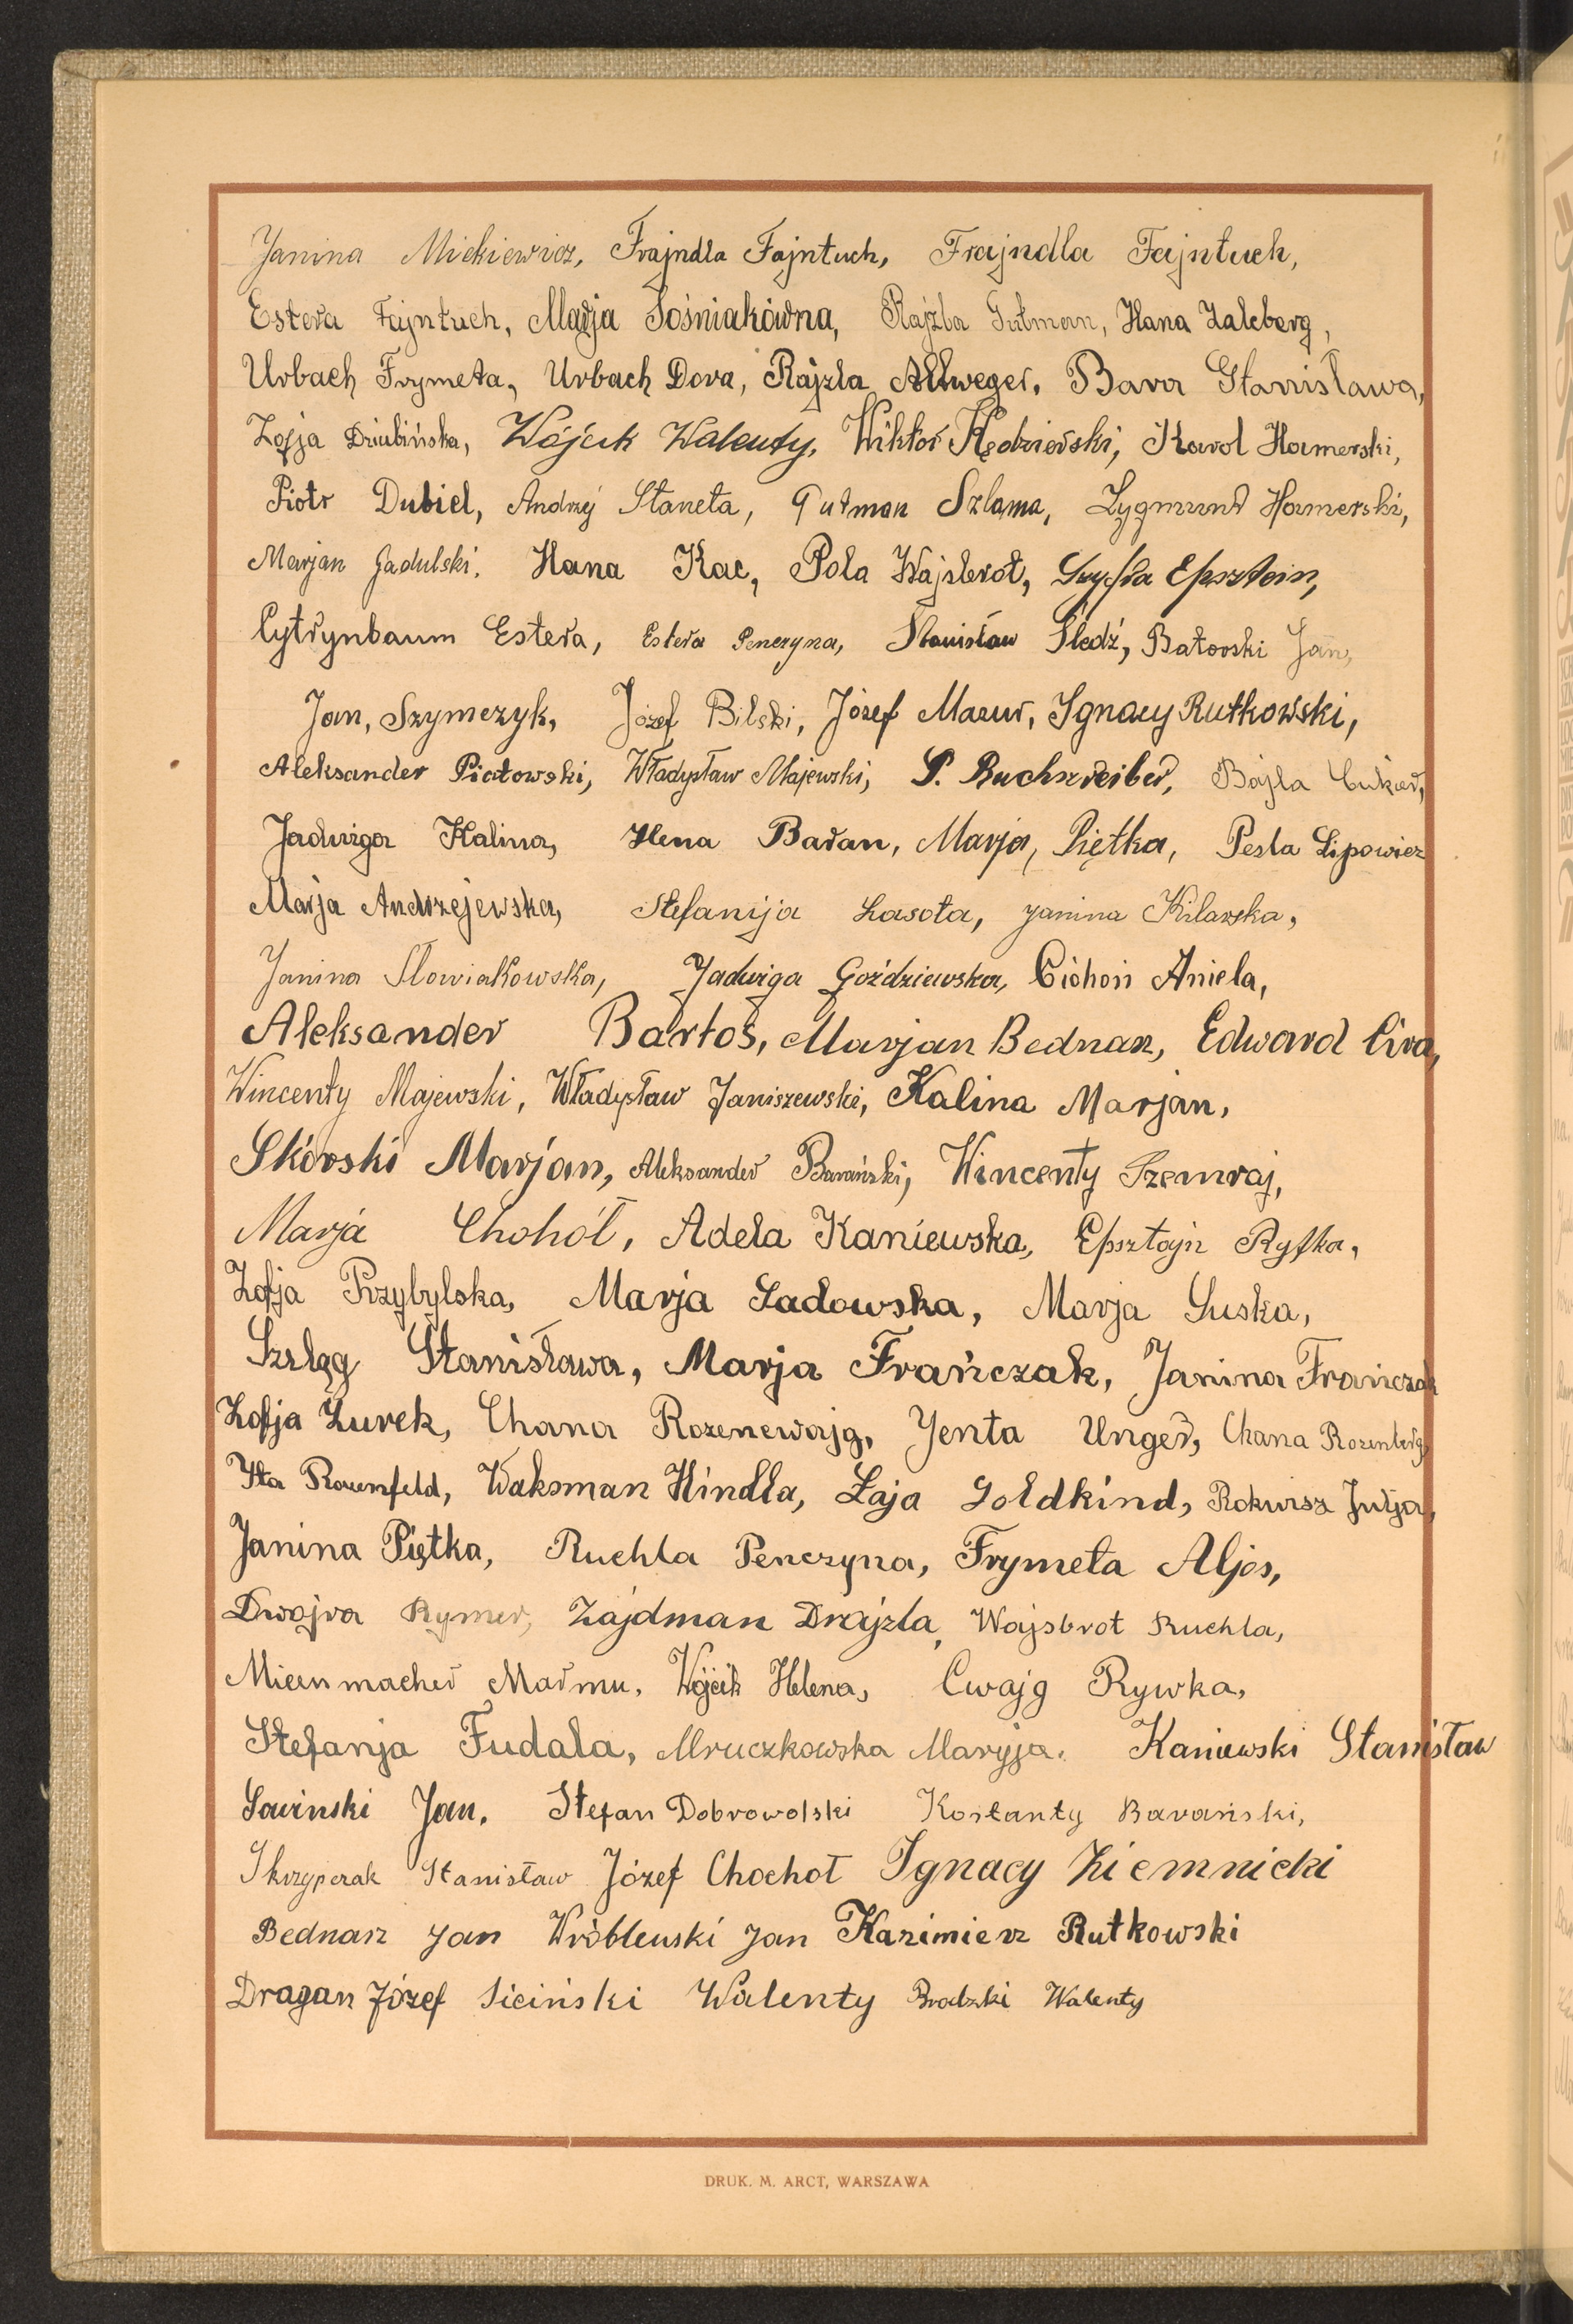 Janina Mickiewicz, Frajndla Fajntuch, Frajndla Fajntuch,
Estera Fajntuch, Marja Sośniakówna, Rajzla Gutman, Hana Zalcberg,
Urbach Frymeta, Urbach Dora, Rajzla Allweger, Bara Stanisława,
Zofja Dziubińska, Wójcik Walenty, Wiktor Kędzierski, Karol Hamerski,
Piotr Dubiel, Andrzej Staneta, Gutman Szlama, Zygmunt Hamerski,
Marjan Gadulski, Hana Kac, Pola Wajsbrot, Epsztein,
Cytrynbaum Estera, Estera Penczyna, Stanisław Śledź, Batorski Jan,
Jan, Szymczyk, Józef Bilski, Józef Mazur, Ignacy Rutkowski,
Aleksander Piotowski, Władysław Majewski, P. Buchszreiber, Bajla Cukier,
Jadwiga Kalina, Hena Baran, Marja, Piętka, Pesla Lipowicz
Marja Andrzejewska, Stefanija Lasota, Janina Kilarska,
Janina Słowiakowska, Jadwiga Goździewska, Cichoń Aniela,
Aleksander Bartos, Marjan Bednarz, Edward Cira,
Wincenty Majewski, Władysław Janiszewski, Kalina Marjan,
Skórski Marjan, Aleksander Barański, Wincenty Szemraj,
Marja Chohół, Adela Kaniewska, Epsztajn Ryfka,
Zofja Przybylska, Marja Sadowska, Marja Suska,
Szeląg Stanisława, Marja Frańczak, Janina Frańczak
Zofja Żurek, Chana Rozenewajg, Jenta Unger, Chana Rozenberg,
Ita Rozenfeld, Waksman Hindla, Łaja Goldkind, Rokwisz Julja,
Janina Piętka, Ruchla Penczyna, Frymeta Aljos,
Dwojra Rymer, Zajdman Drajzla, Wajsbrot Ruchla,
Miecnmacher Marmu, Wójcik Helena, Cwajg Rywka,
Stefanja Fudala, Mruczkowska Maryja. Kaniewski Stanisław
Sawinski Jan. Stefan Dobrowolski Kostanty Barański,
Skrzypczak Stanisław Józef Chochoł Ignacy Ziemnicki
Bednarz Jan Wróblewski Jan Kazimierz Rutkowski
Dragan Józef Siciński Walenty Brodzki Walenty
DRUK. M. ARCT, WARSZAWA